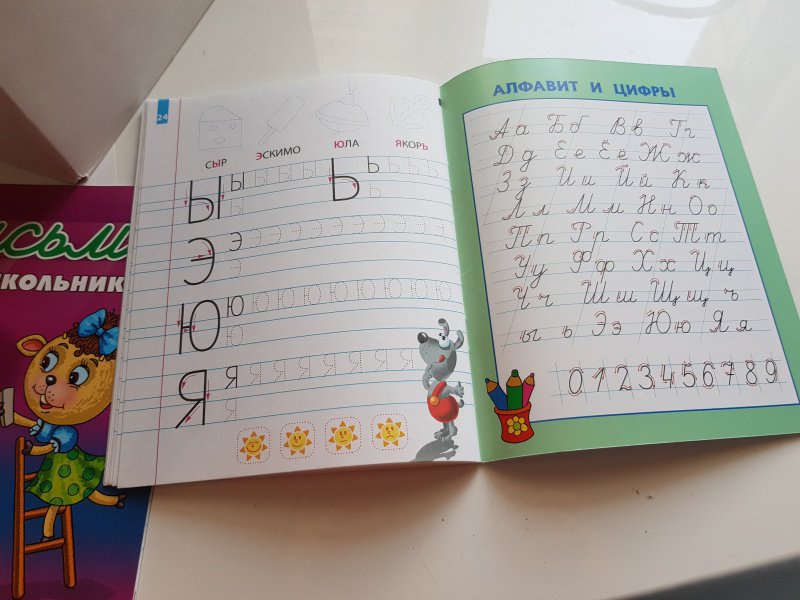 24
СЫР ЭСКИМО ЮЛА ЯКОРЬ
Ы Ы Ы Ы Ы Ь Ь Ь Ь Ь
Ы Ь
Э Э Э Э Э Э Э Э Э Э Э Э
Э
Ю Ю Ю Ю Ю Ю Ю Ю Ю Ю
Ю
Я Я Я Я Я Я Я Я Я
Я
АЛФАВИТ И ЦИФРЫ
Аа Бб Вв Гг
Дд Ее Ёё Жж
Зз Ии Йй Кк
Лл Мм Нн Оо
Пп Рр Сс Тт
Уу Фф Хх Цц
Чч Шш Щщ ъ
ы ь Ээ Юю Яя
0 1 2 3 4 5 6 7 8 9